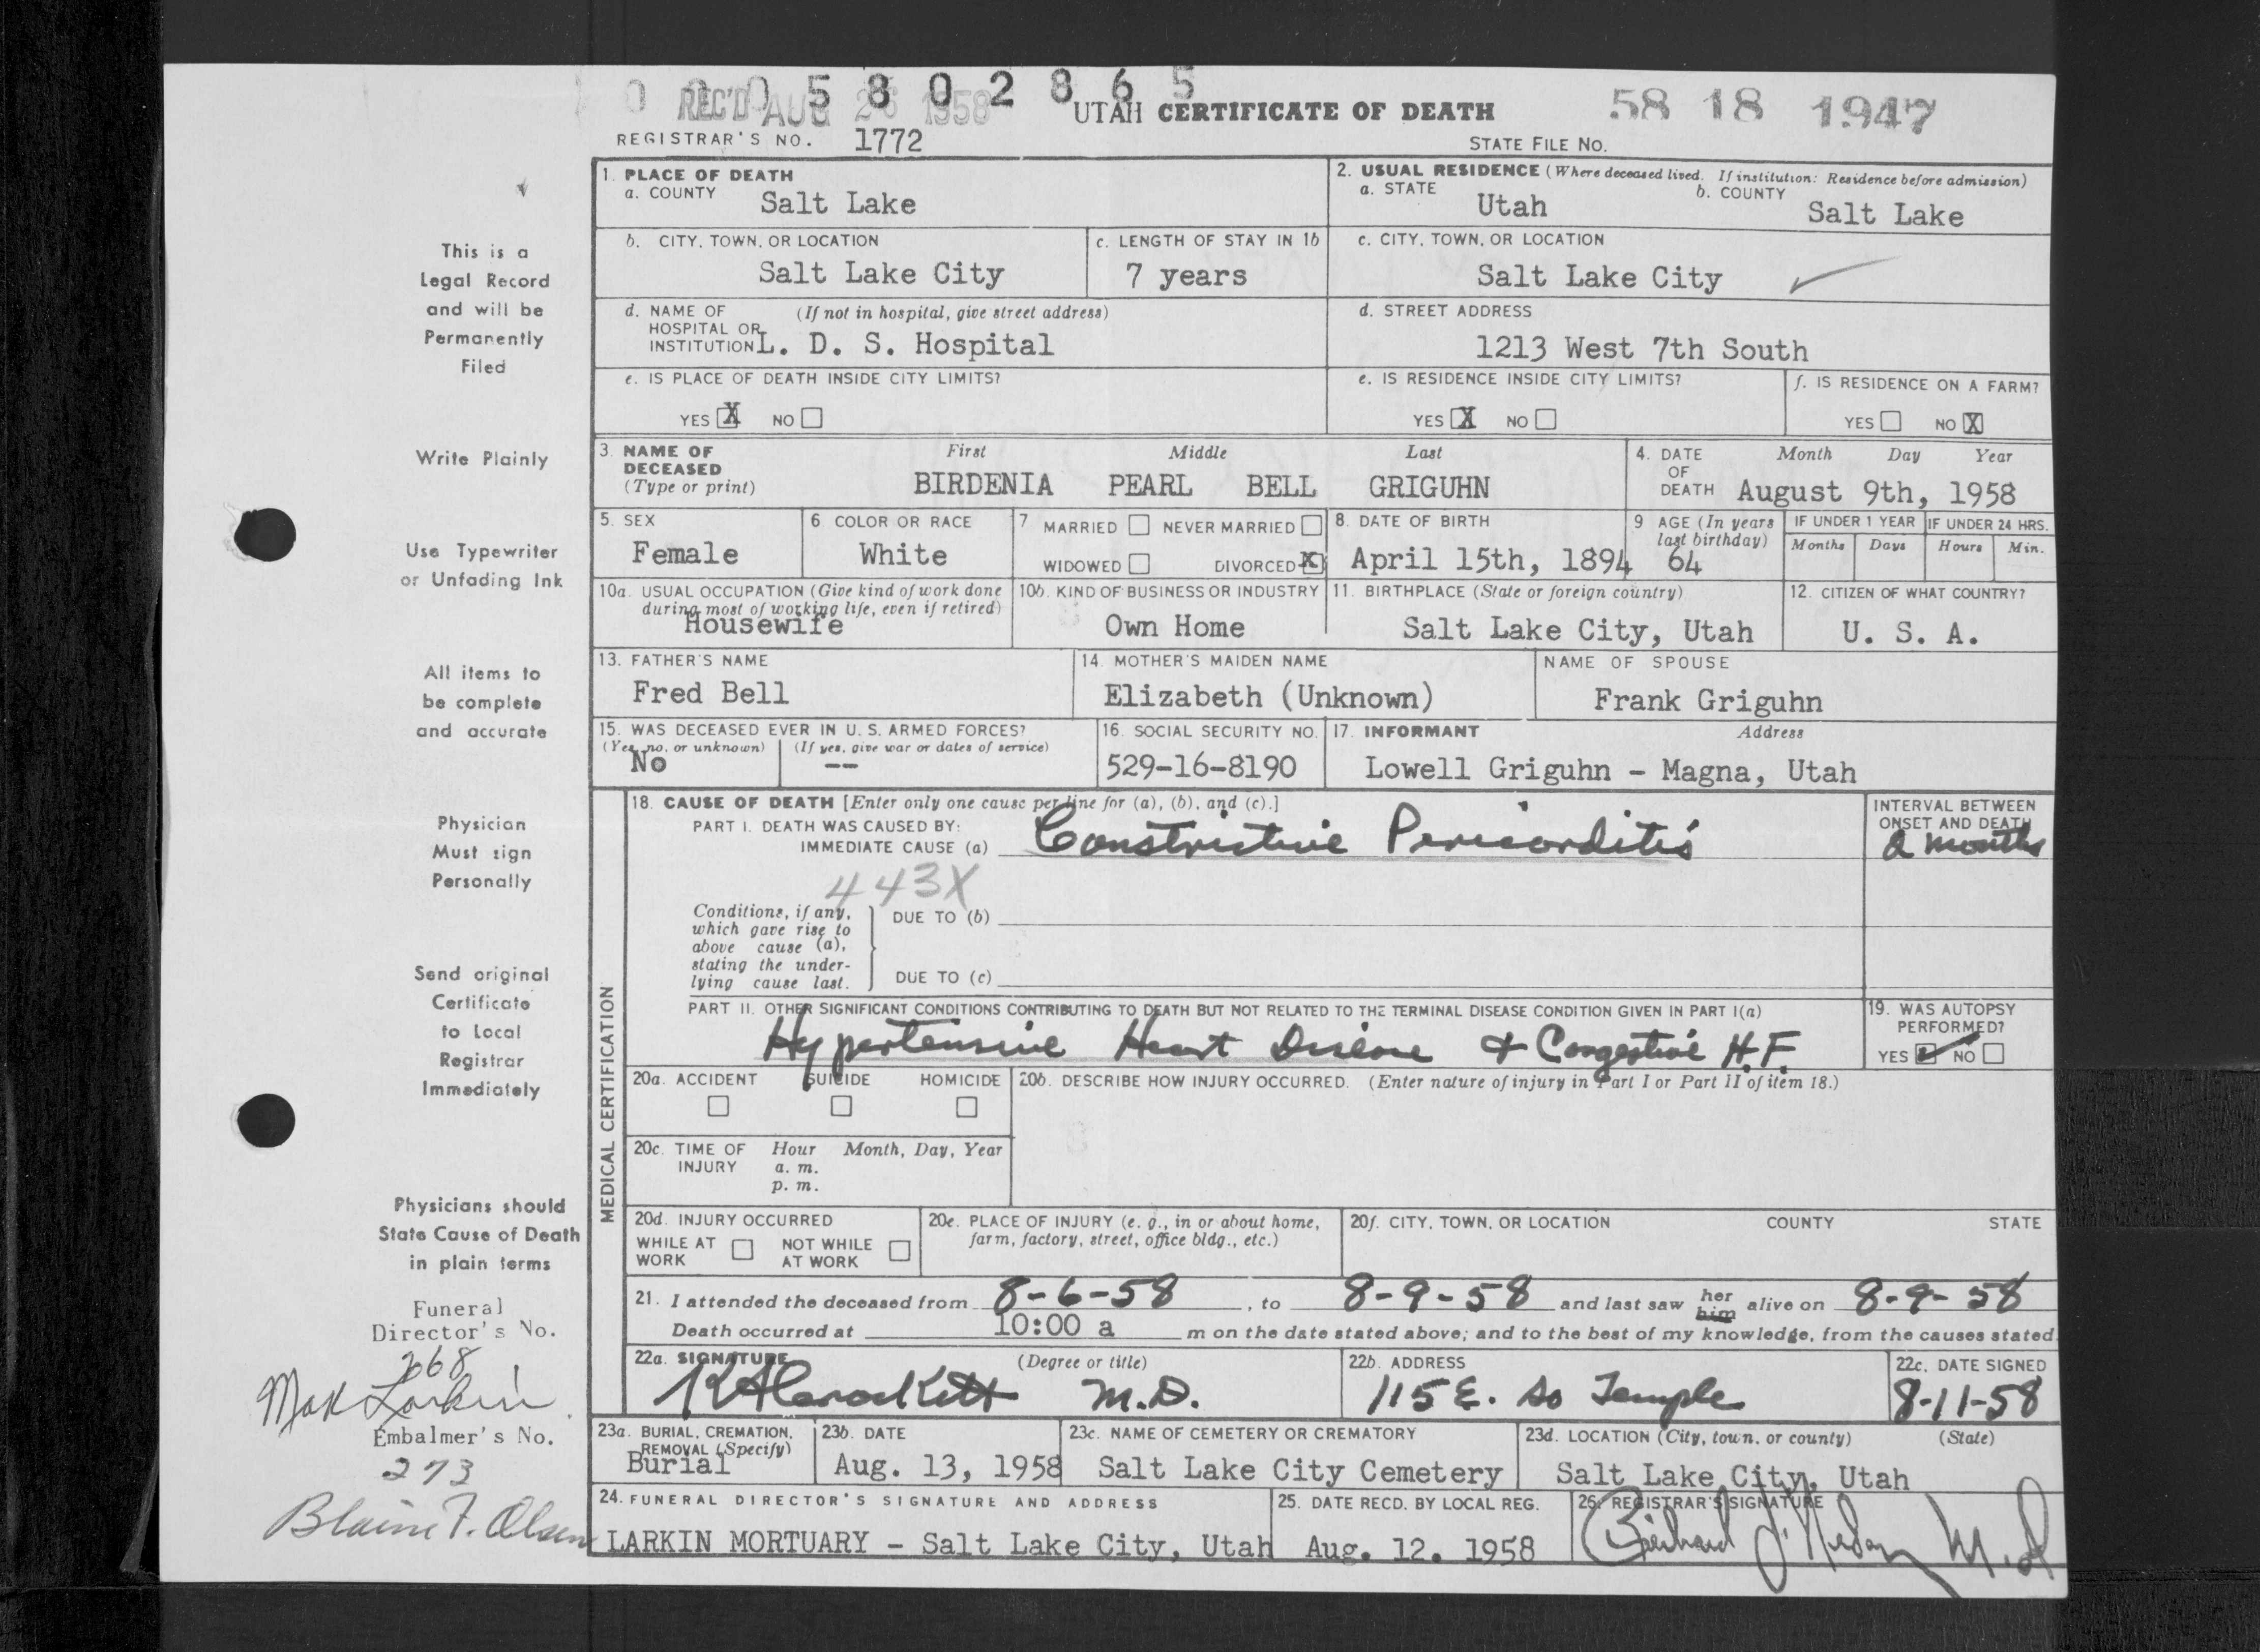 0 0 0 5 8 0 2 8 6 5
REC'D AUG 26 1958
UTAH CERTIFICATE OF DEATH
58 18 1947
REGISTRAR'S NO. 1772
STATE FILE No.
This is a
Legal Record
and will be
Permanently
Filed
Write Plainly
Use Typewriter
or Unfading Ink
All items to
be complete
and accurate
Physician
Must sign
Personally
Send original
Certificate
to Local
Registrar
Immediately
Physicians should
State Cause of Death
in plain terms
Funeral
Director's No.
268
Max Larkin
Embalmer's No.
273
Blaine F. Olsen
1. PLACE OF DEATH
a. COUNTY Salt Lake
2. USUAL RESIDENCE (Where deceased lived. If institution: Residence before admission)
a. STATE Utah b. COUNTY Salt Lake
b. CITY, TOWN, OR LOCATION
Salt Lake City
c. LENGTH OF STAY IN 1b
7 years
c. CITY, TOWN, OR LOCATION
Salt Lake City
d. NAME OF (If not in hospital, give street address)
HOSPITAL OR
INSTITUTION L. D. S. Hospital
d. STREET ADDRESS
1213 West 7th South
e. IS PLACE OF DEATH INSIDE CITY LIMITS?
YES X NO
e. IS RESIDENCE INSIDE CITY LIMITS?
YES X NO
f. IS RESIDENCE ON A FARM?
YES NO X
3. NAME OF DECEASED (Type or print)
First Middle Last
BIRDENIA PEARL BELL GRIGUHN
4. DATE OF DEATH Month Day Year
August 9th, 1958
5. SEX
Female
6 COLOR OR RACE
White
7 MARRIED NEVER MARRIED
WIDOWED DIVORCED X
8. DATE OF BIRTH
April 15th, 1894
9 AGE (In years last birthday)
64
IF UNDER 1 YEAR IF UNDER 24 HRS.
Months Days Hours Min.
10a. USUAL OCCUPATION (Give kind of work done
during most of working life, even if retired)
Housewife
10b. KIND OF BUSINESS OR INDUSTRY
Own Home
11. BIRTHPLACE (State or foreign country)
Salt Lake City, Utah
12. CITIZEN OF WHAT COUNTRY?
U. S. A.
13. FATHER'S NAME
Fred Bell
14. MOTHER'S MAIDEN NAME
Elizabeth (Unknown)
NAME OF SPOUSE
Frank Griguhn
15. WAS DECEASED EVER IN U. S. ARMED FORCES?
(Yes, no, or unknown) (If yes, give war or dates of service)
No --
16. SOCIAL SECURITY NO.
529-16-8190
17. INFORMANT Address
Lowell Griguhn - Magna, Utah
MEDICAL CERTIFICATION
18. CAUSE OF DEATH [Enter only one cause per line for (a), (b), and (c).]
PART I. DEATH WAS CAUSED BY:
IMMEDIATE CAUSE (a) Constrictive Pericarditis
INTERVAL BETWEEN
ONSET AND DEATH
2 months
443X
Conditions, if any,
which gave rise to
above cause (a),
stating the under-
lying cause last.
DUE TO (b)
DUE TO (c)
PART II. OTHER SIGNIFICANT CONDITIONS CONTRIBUTING TO DEATH BUT NOT RELATED TO THE TERMINAL DISEASE CONDITION GIVEN IN PART I(a)
Hypertensive Heart Disease & Congestive H.F.
19. WAS AUTOPSY
PERFORMED?
YES NO
20a. ACCIDENT SUICIDE HOMICIDE
20b. DESCRIBE HOW INJURY OCCURRED. (Enter nature of injury in Part I or Part II of item 18.)
20c. TIME OF INJURY Hour Month, Day, Year
a. m.
p. m.
20d. INJURY OCCURRED
WHILE AT WORK NOT WHILE AT WORK
20e. PLACE OF INJURY (e. g., in or about home,
farm, factory, street, office bldg., etc.)
20f. CITY, TOWN, OR LOCATION COUNTY STATE
21. I attended the deceased from 8-6-58, to 8-9-58 and last saw her him alive on 8-9-58
Death occurred at 10:00 a m on the date stated above; and to the best of my knowledge, from the causes stated.
22a. SIGNATURE (Degree or title)
K A Crockett M.D.
22b. ADDRESS
115 E. So Temple
22c. DATE SIGNED
8-11-58
23a. BURIAL, CREMATION,
REMOVAL (Specify)
Burial
23b. DATE
Aug. 13, 1958
23c. NAME OF CEMETERY OR CREMATORY
Salt Lake City Cemetery
23d. LOCATION (City, town, or county) (State)
Salt Lake City, Utah
24. FUNERAL DIRECTOR'S SIGNATURE AND ADDRESS
LARKIN MORTUARY - Salt Lake City, Utah
25. DATE RECD. BY LOCAL REG.
Aug. 12. 1958
26. REGISTRAR'S SIGNATURE
M.D